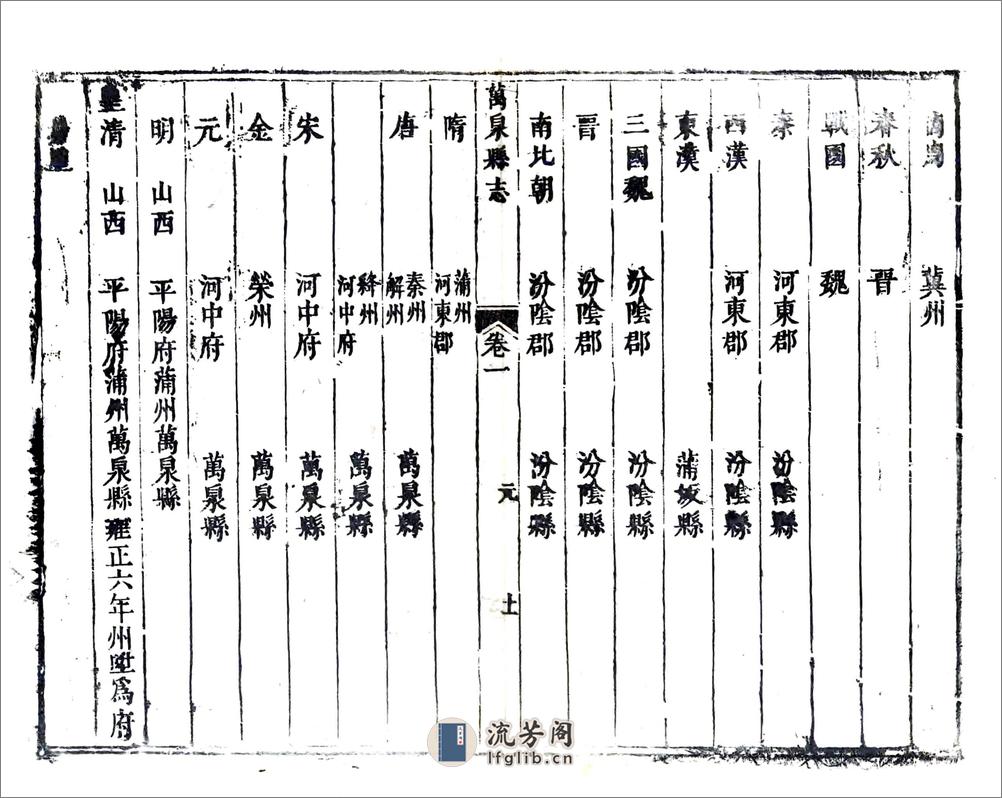 冀州
春秋 晉
戰國 魏
秦 河東郡 汾陰縣
西漢 河東郡 汾陰縣
東漢 蒲坂縣
三國魏 汾陰郡 汾陰縣
晋 汾陰郡 汾陰縣
南北朝 汾陰郡 汾陰縣
萬泉縣志 卷一 元 土
隋 蒲州 河東郡
唐 泰州 解州 萬泉縣
絳州 河中府 萬泉縣
宋 河中府 萬泉縣
金 榮州 萬泉縣
元 河中府 萬泉縣
明 山西 平陽府蒲州萬泉縣
皇清 山西 平陽府蒲州萬泉縣雍正六年州陞爲府
流芳阁
lfglib.cn